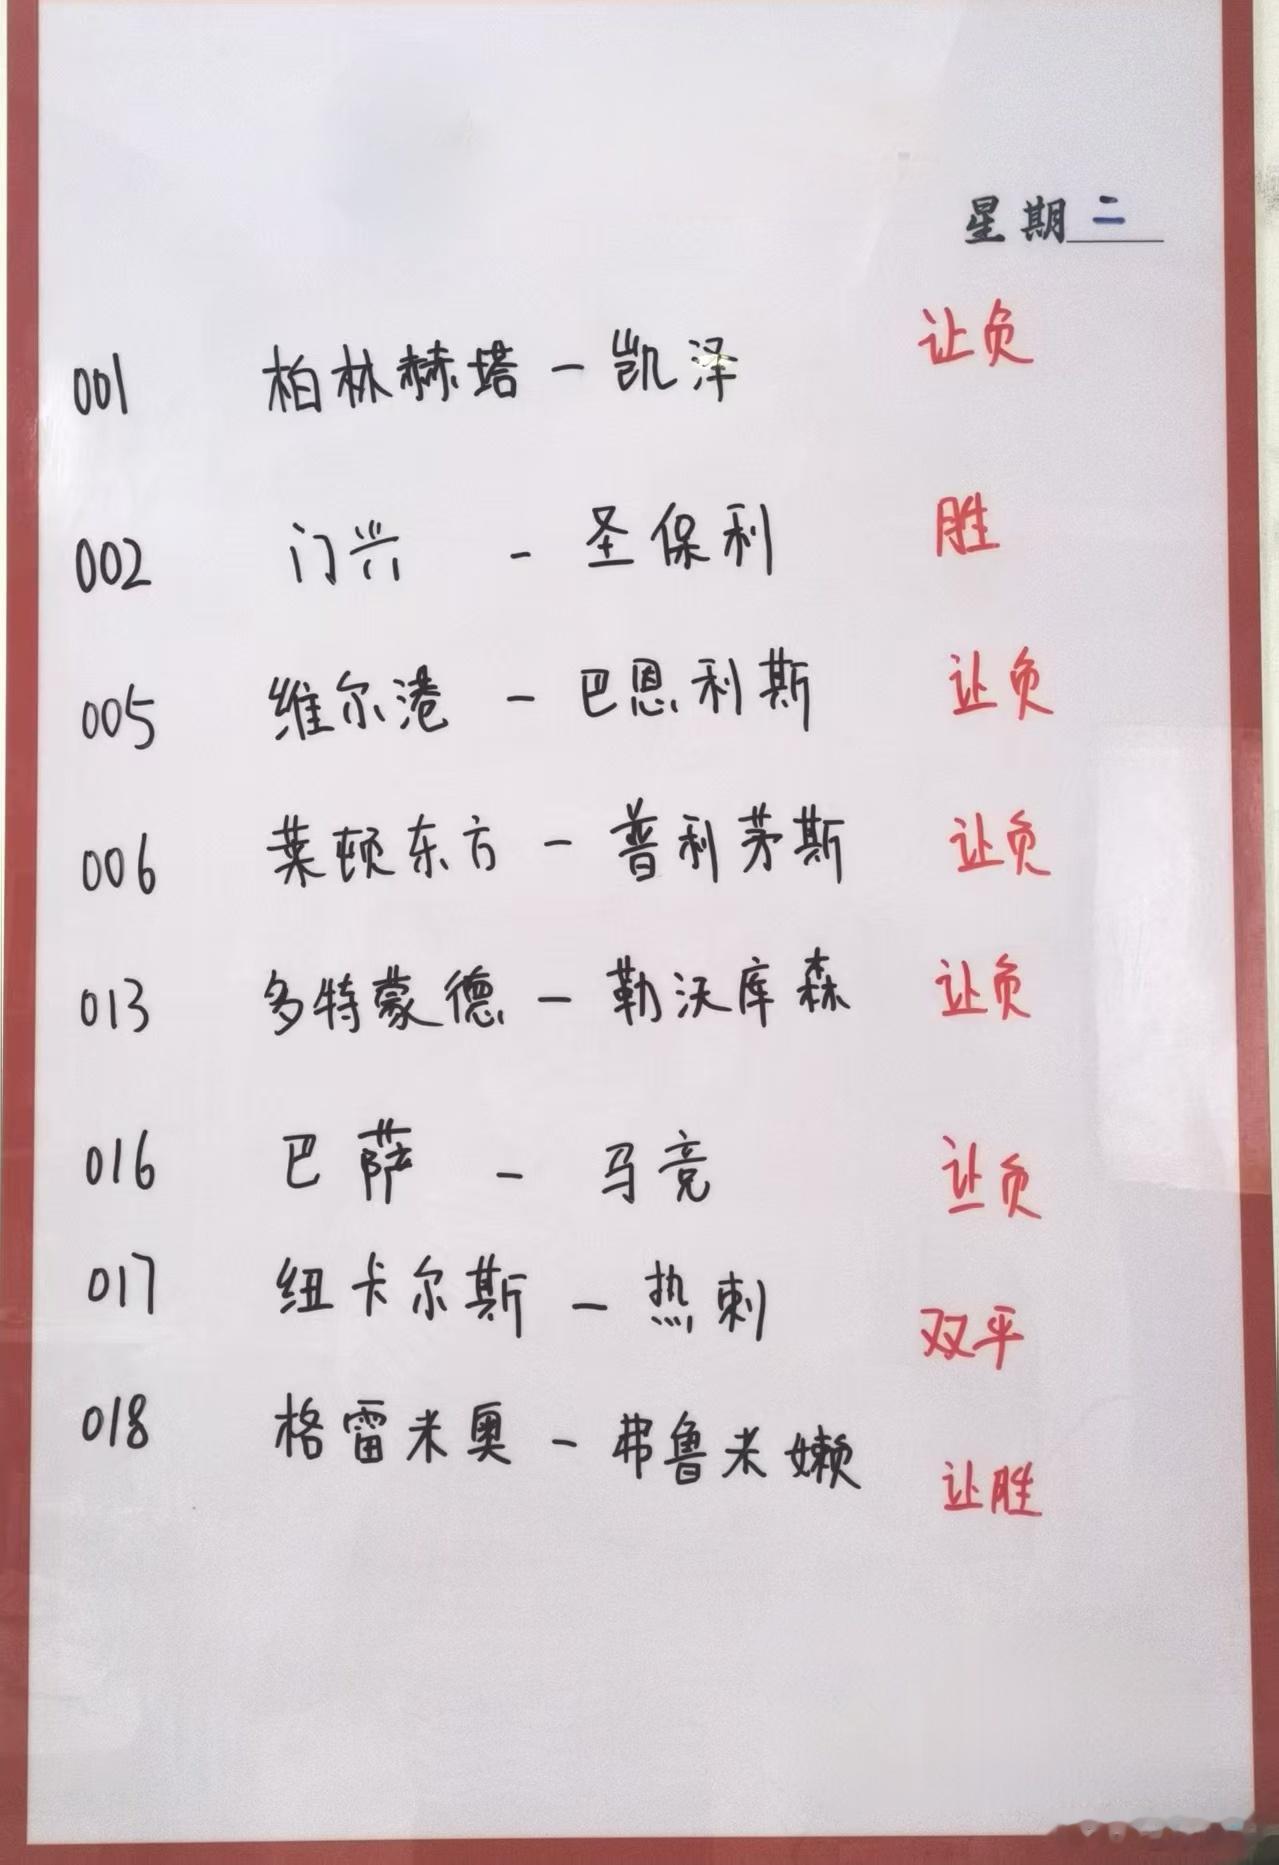 星期二
001 柏林赫塔 - 凯泽 让负
002 门兴 - 圣保利 胜
005 维尔港 - 巴恩利斯 让负
006 莱顿东方 - 普利茅斯 让负
013 多特蒙德 - 勒沃库森 让负
016 巴萨 - 马竞 让负
017 纽卡尔斯 - 热刺 双平
018 格雷米奥 - 弗鲁米嫩 让胜